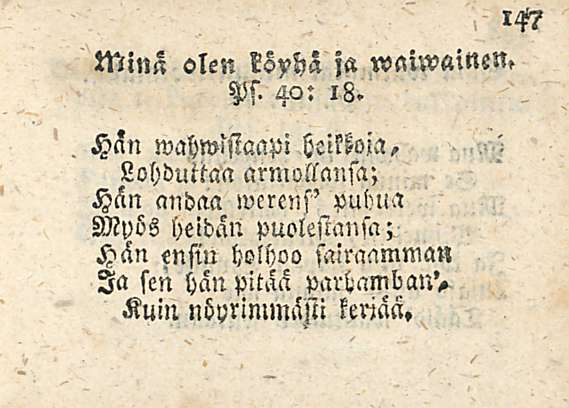 147
Minä olen köyhä ja waiwainen.
Ps. 40: 18.
Hän wahwistaapi heikkoja,
Lohduttaa armollansa;
Hän andaa werens' puhua
Myös heidän puolestansa;
Hän ensin holhoo sairaamman
Ja sen hän pitää parhamban',
Kuin nöyrimmästi kerjää.